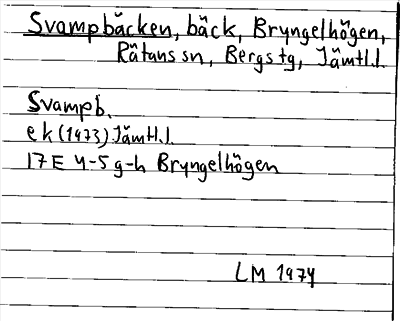 Svampbäcken, bäck, Bryngelhögen,
Rätans sn, Bergs tg, Jämtl.l.
Svampb.
ek (1973) Jämtl.l.
17E 4-5 g-h Bryngelhögen
LM 1974